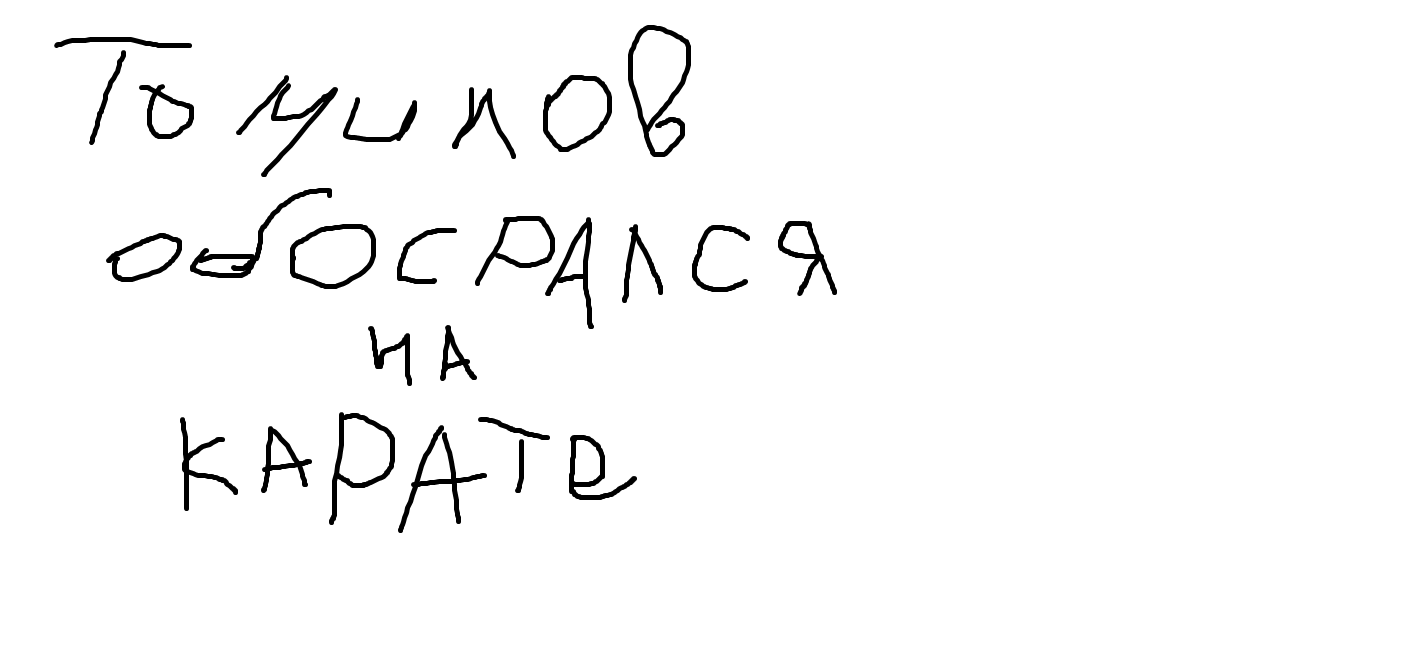 Томилов
обОСРАЛСЯ
НА
КАРАТЕ